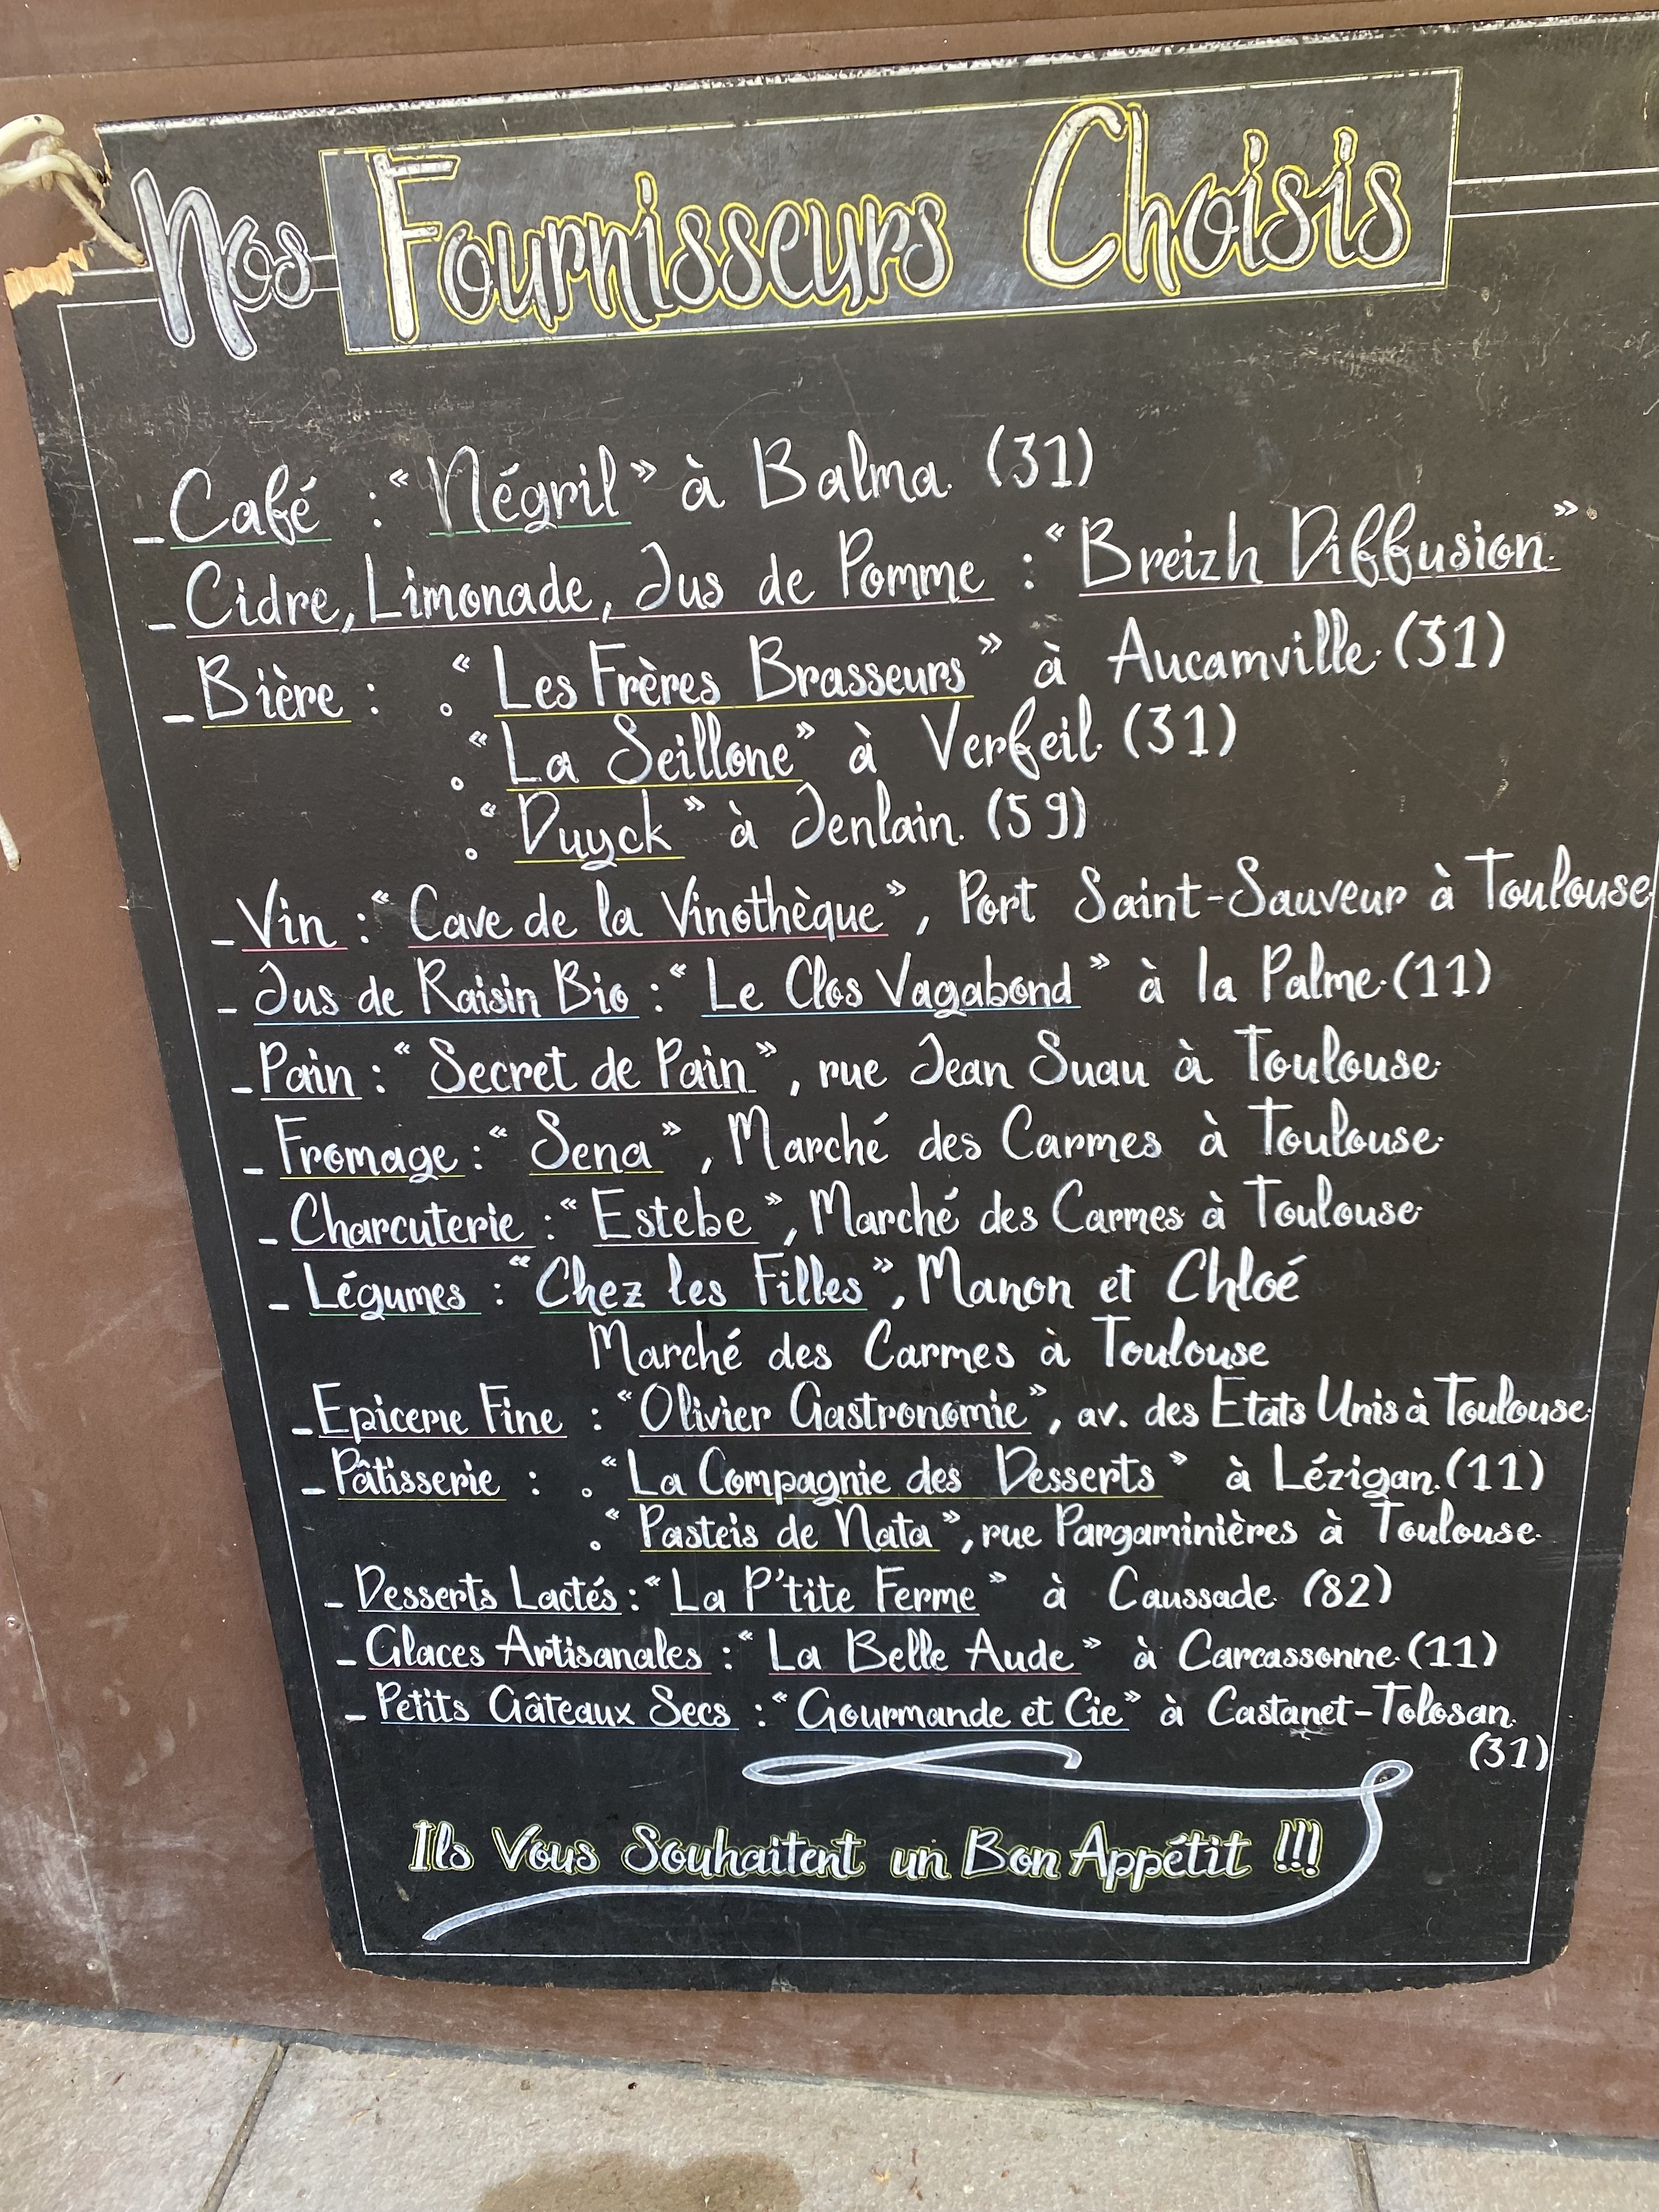 Nos Fournisseurs Choisis
_ Café : “ Négril ” à Balma. (31)
_ Cidre, Limonade, Jus de Pomme : “ Breizh Diffusion. ”
_ Bière : . “ Les Frères Brasseurs ” à Aucamville. (31)
. “ La Seillone ” à Verfeil. (31)
. “ Duyck ” à Jenlain. (59)
_ Vin : “ Cave de la Vinothèque ”, Port Saint-Sauveur à Toulouse.
_ Jus de Raisin Bio : “ Le Clos Vagabond ” à la Palme. (11)
_ Pain : “ Secret de Pain ”, rue Jean Suau à Toulouse.
_ Fromage : “ Sena ”, Marché des Carmes à Toulouse.
_ Charcuterie : “ Estebe ”, Marché des Carmes à Toulouse.
_ Légumes : “ Chez les Filles ”, Manon et Chloé
Marché des Carmes à Toulouse
_ Epicerie Fine : “ Olivier Gastronomie ”, av. des Etats Unis à Toulouse.
_ Pâtisserie : . “ La Compagnie des Desserts ” à Lézigan. (11)
. “ Pasteis de Nata ”, rue Pargaminières à Toulouse.
_ Desserts Lactés : “ La P'tite Ferme ” à Caussade. (82)
_ Glaces Artisanales : “ La Belle Aude ” à Carcassonne. (11)
_ Petits Gâteaux Secs : “ Gourmande et Cie ” à Castanet-Tolosan.
(31)
Ils Vous Souhaitent un Bon Appétit !!!